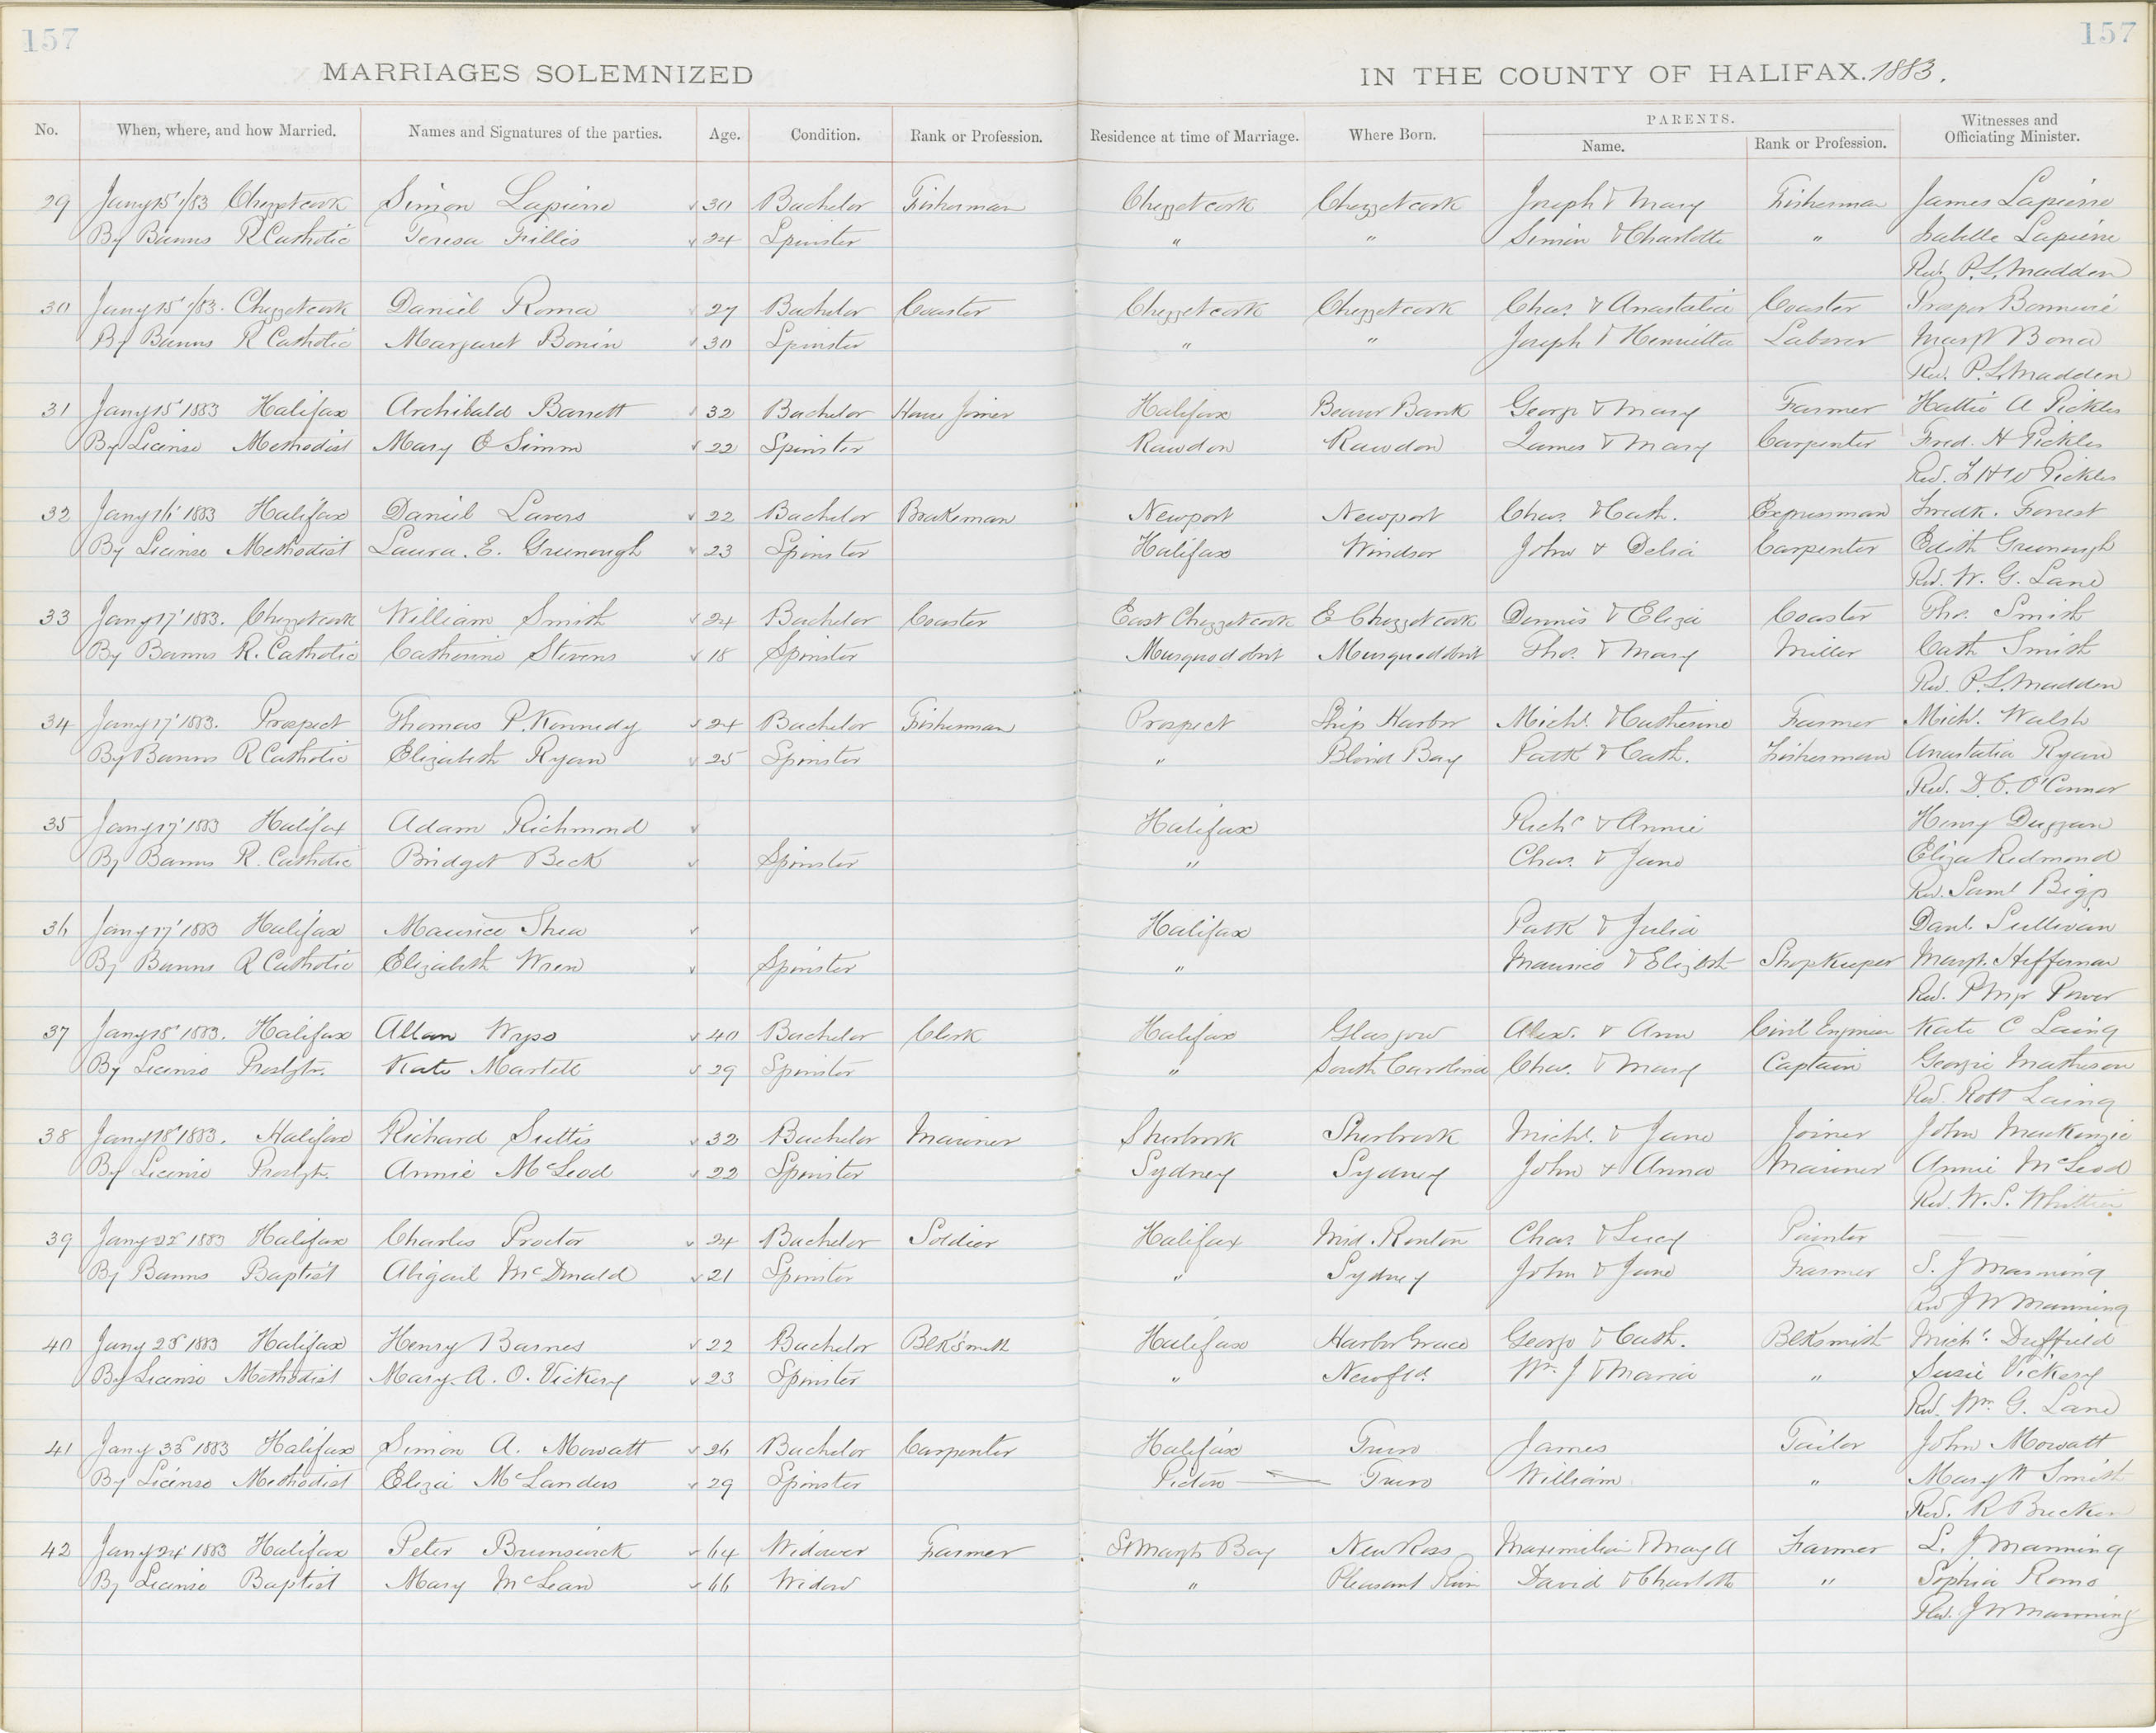 157
157
MARRIAGES SOLEMNIZED
IN THE COUNTY OF HALIFAX. 1883.
No. When, where, and how Married. Names and Signatures of the parties. Age. Condition. Rank or Profession. Residence at time of Marriage. Where Born. PARENTS. Name. Rank or Profession. Witnesses and Officiating Minister.
29 Jany 15 1/83 Chezzetcook Simon Lapierre 30 Bachelor Fisherman Chezzetcook Chezzetcook Joseph & Mary Fisherman James Lapierre
By Banns R Catholic Teresa Fillis 24 Spinster " " Simon & Charlotte " Isabella Lapierre
Rev. P. S. Madden
30 Jany 15 1/83. Chezzetcook Daniel Roma 27 Bachelor Coaster Chezzetcook Chezzetcook Chas. & Anastatia Coaster Prosper Bonnevie
By Banns R Catholic Margaret Bonin 30 Spinster " " Joseph & Henrietta Laborer Margt Bona
Rev. P. S. Madden
31 Jany 15 1883 Halifax Archibald Barrett 32 Bachelor House Joiner Halifax Beaver Bank George & Mary Farmer Hattie A Pickles
By License Methodist Mary E Simm 22 Spinster Rawdon Rawdon James & Mary Carpenter Fred. H Pickles
Rev. F H W Pickles
32 Jany 16 1883 Halifax Daniel Lavers 22 Bachelor Brakeman Newport Newport Chas. & Cath. Expressman Fredk. Forrest
By License Methodist Laura. E. Greenough 23 Spinster Halifax Windsor John & Delia Carpenter Edith Greenough
Rev. W. G. Lane
33 Jany 17 1883. Chezzetcook William Smith 24 Bachelor Coaster East Chezzetcook E Chezzetcook Dennis & Eliza Coaster Thos. Smith
By Banns R. Catholic Catherine Stevens 18 Spinster Musquodobit Musquodobit Thos. & Mary Miller Cath Smith
Rev. P. S. Madden
34 Jany 17 1883. Prospect Thomas P. Kennedy 24 Bachelor Fisherman Prospect Ship Harbor Michl. & Catherine Farmer Michl. Walsh
By Banns R Catholic Elizabeth Ryan 25 Spinster " Blind Bay Patk & Cath. Fisherman Anastatia Ryan
Rev. D. C. O'Connor
35 Jany 17 1883 Halifax Adam Richmond Halifax Richd & Annie Henry Duggan
By Banns R. Catholic Bridget Beck Spinster " Chas. & Jane Eliza Redmond
Rev. Saml Biggs
36 Jany 17 1883 Halifax Maurice Shea Halifax Patk & Julia Danl. Sullivan
By Banns R Catholic Elizabeth Wren Spinster " Maurice & Elizbth Shopkeeper Margt. Heffernan
Rev. Power
37 Jany 18 1883. Halifax Allan 40 Bachelor Clerk Halifax Glasgow Alexr. & Ann Civil Engineer Kate C Laing
By License Presbytn. Kate Martell 29 Spinster " South Carolina Chas. & Mary Captain Georgie Matheson
Rev. Robt Laing
38 Jany 18 1883. Halifax Richard Suttis 32 Bachelor Mariner Sherbrook Sherbrook Michl. & Jane Joiner John MacKenzie
By License Presbytn. Annie McLeod 22 Spinster Sydney Sydney John & Anna Mariner Annie McLeod
Rev. W. S. Whittier
39 Jany 22 1883 Halifax Charles Proctor 24 Bachelor Soldier Halifax Mid. Renton Chas. & Lucy Painter
By Banns Baptist Abigail McDonald 21 Spinster " Sydney John & Jane Farmer S. J Manning
Rev J W Manning
40 Jany 23 1883 Halifax Henry Barnes 22 Bachelor Blksmith Halifax Harbor Grace George & Cath. Blksmith Michl. Duffield
By License Methodist Mary. A. O. Vickery 23 Spinster " Newfld. Wm. J & Maria " Susie Vickery
Rev. Wm. G. Lane
41 Jany 23 1883 Halifax Simon A. Mowatt 26 Bachelor Carpenter Halifax Truro James Tailor John Mowatt
By License Methodist Eliza McLanders 29 Spinster Pictou Truro William " Mary W Smith
Rev. R Brecken
42 Jany 24 1883 Halifax Peter Brunswick 64 Widower Farmer St Margts Bay New Ross Maximilian & Mary A Farmer S. J Manning
By License Baptist Mary McLean 66 Widow " Pleasant River David & Charlotte " Sophia Romo
Rev. J W Manning